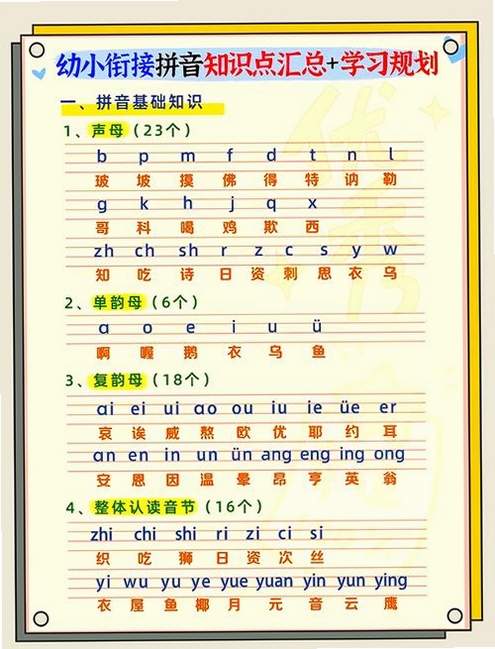 幼小衔接拼音知识点汇总+学习规划
一、拼音基础知识
1、声母（23个）
b p m f d t n l
玻 坡 摸 佛 得 特 讷 勒
g k h j q x
哥 科 喝 鸡 欺 西
zh ch sh r z c s y w
知 吃 诗 日 资 刺 思 衣 乌
2、单韵母（6个）
ɑ o e i u ü
啊 喔 鹅 衣 乌 鱼
3、复韵母（18个）
ɑi ei ui ɑo ou iu ie üe er
哀 诶 威 熬 欧 优 耶 约 耳
ɑn en in un ün ɑng eng ing ong
安 恩 因 温 晕 昂 亨 英 翁
4、整体认读音节（16个）
zhi chi shi ri zi ci si
织 吃 狮 日 资 次 丝
yi wu yu ye yue yuɑn yin yun ying
衣 屋 鱼 椰 月 元 音 云 鹰